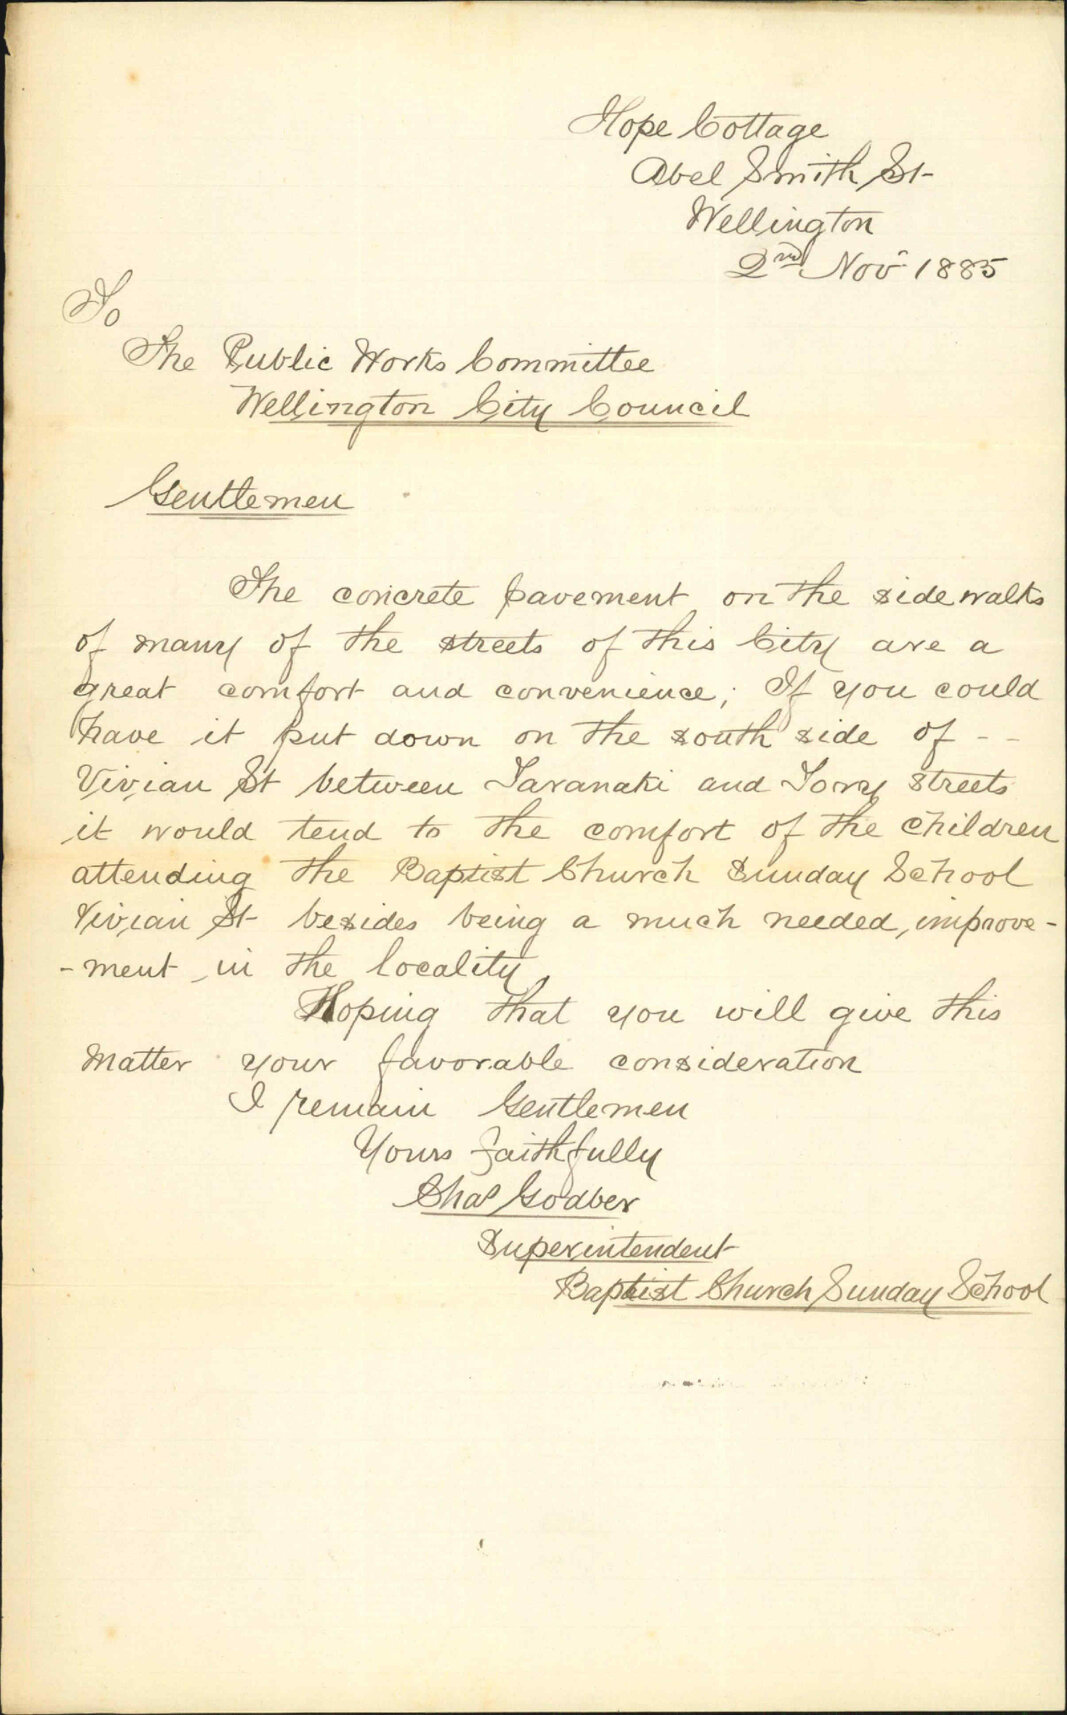 Hope Cottage
Abel Smith St
Wellington
2nd Nov 1885
To
The Public Works Committee
Wellington City Council
Gentlemen
The concrete pavement on the sidewalks
of many of the streets of this City are a
great comfort and convenience; If you could
have it put down on the south side of - -
Vivian St between Taranaki and Tory streets
it would tend to the comfort of the children
attending the Baptist Church Sunday School
Vivian St besides being a much needed, improve-
-ment in the locality
Hoping that you will give this
matter your favorable consideration
I remain Gentlemen
Yours faithfully
Chas Godber
Superintendent
Baptist Church Sunday School